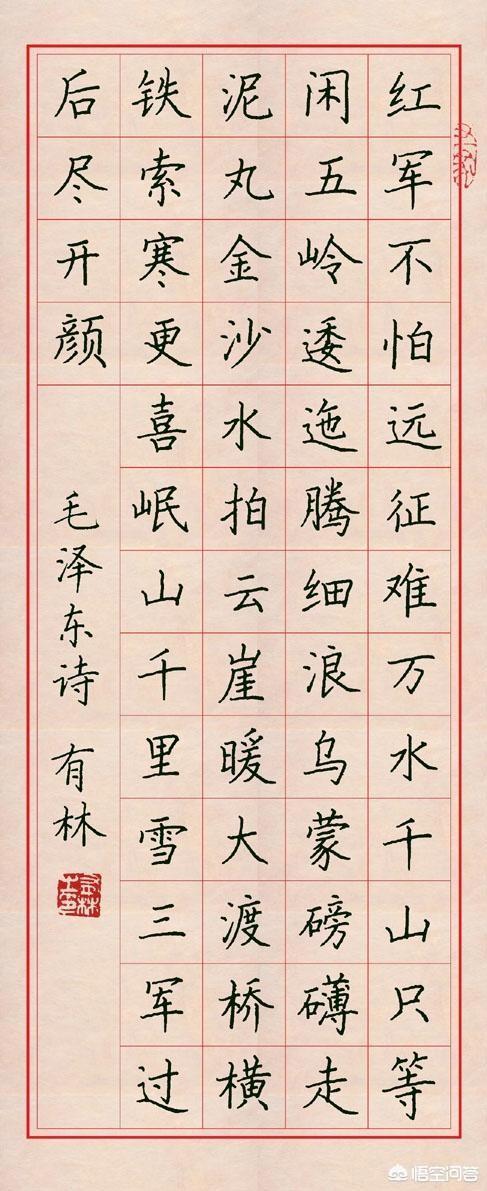 红军不怕远征难万水千山只等
闲五岭逶迤腾细浪乌蒙磅礴走
泥丸金沙水拍云崖暖大渡桥横
铁索寒更喜岷山千里雪三军过
后尽开颜
毛泽东诗 有林
悟空问答